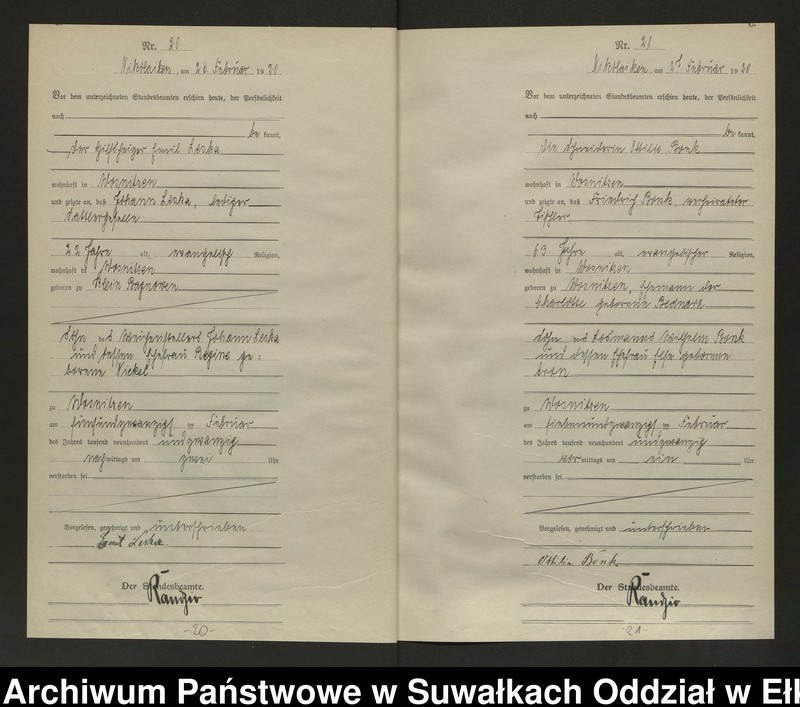 Nr. 20
Nikolaiken, am 26. Februar 1920
Vor dem unterzeichneten Standesbeamten erschien heute, der Persönlichkeit
nach
be kannt,
der Hilfsheizer Emil Leska
wohnhaft in Wosnitzen
und zeigte an, daß Johann Leska, lediger
Sattlergeselle
22 Jahre alt, evangelisch Religion,
wohnhaft in Wosnitzen
geboren zu Klein Bagnowen
Sohn des Weichenstellers Johann Leska
und dessen Ehefrau Regine ge=
borene Nickel
zu Wosnitzen
am fünfundzwanzigst en Februar
des Jahres tausend neunhundert undzwanzig
nachmittags um zwei Uhr
verstorben sei.
Vorgelesen, genehmigt und unterschrieben
Emil Leska.
Der Standesbeamte.
-20-
Nr. 21
Nikolaiken, am 27. Februar 1920
Vor dem unterzeichneten Standesbeamten erschien heute, der Persönlichkeit
nach
be kannt,
die Schneiderin Ottilie Bonk
wohnhaft in Wosnitzen
und zeigte an, daß Friedrich Bonk, verheirateter
Tischler,
63 Jahre alt, evangelischer Religion,
wohnhaft in Wosnitzen
geboren zu Wosnitzen, Ehemann der
Charlotte geborene Bednarz
Sohn des Losmanns Wilhelm Bonk
und dessen Ehefrau Else geborene
zu Wosnitzen
am siebenundzwanzigst en Februar
des Jahres tausend neunhundert undzwanzig
vormittags um ein Uhr
verstorben sei.
Vorgelesen, genehmigt und unterschrieben
Ottilie Bonk
Der Standesbeamte.
-21-
Archiwum Państwowe w Suwałkach Oddział w Ełk